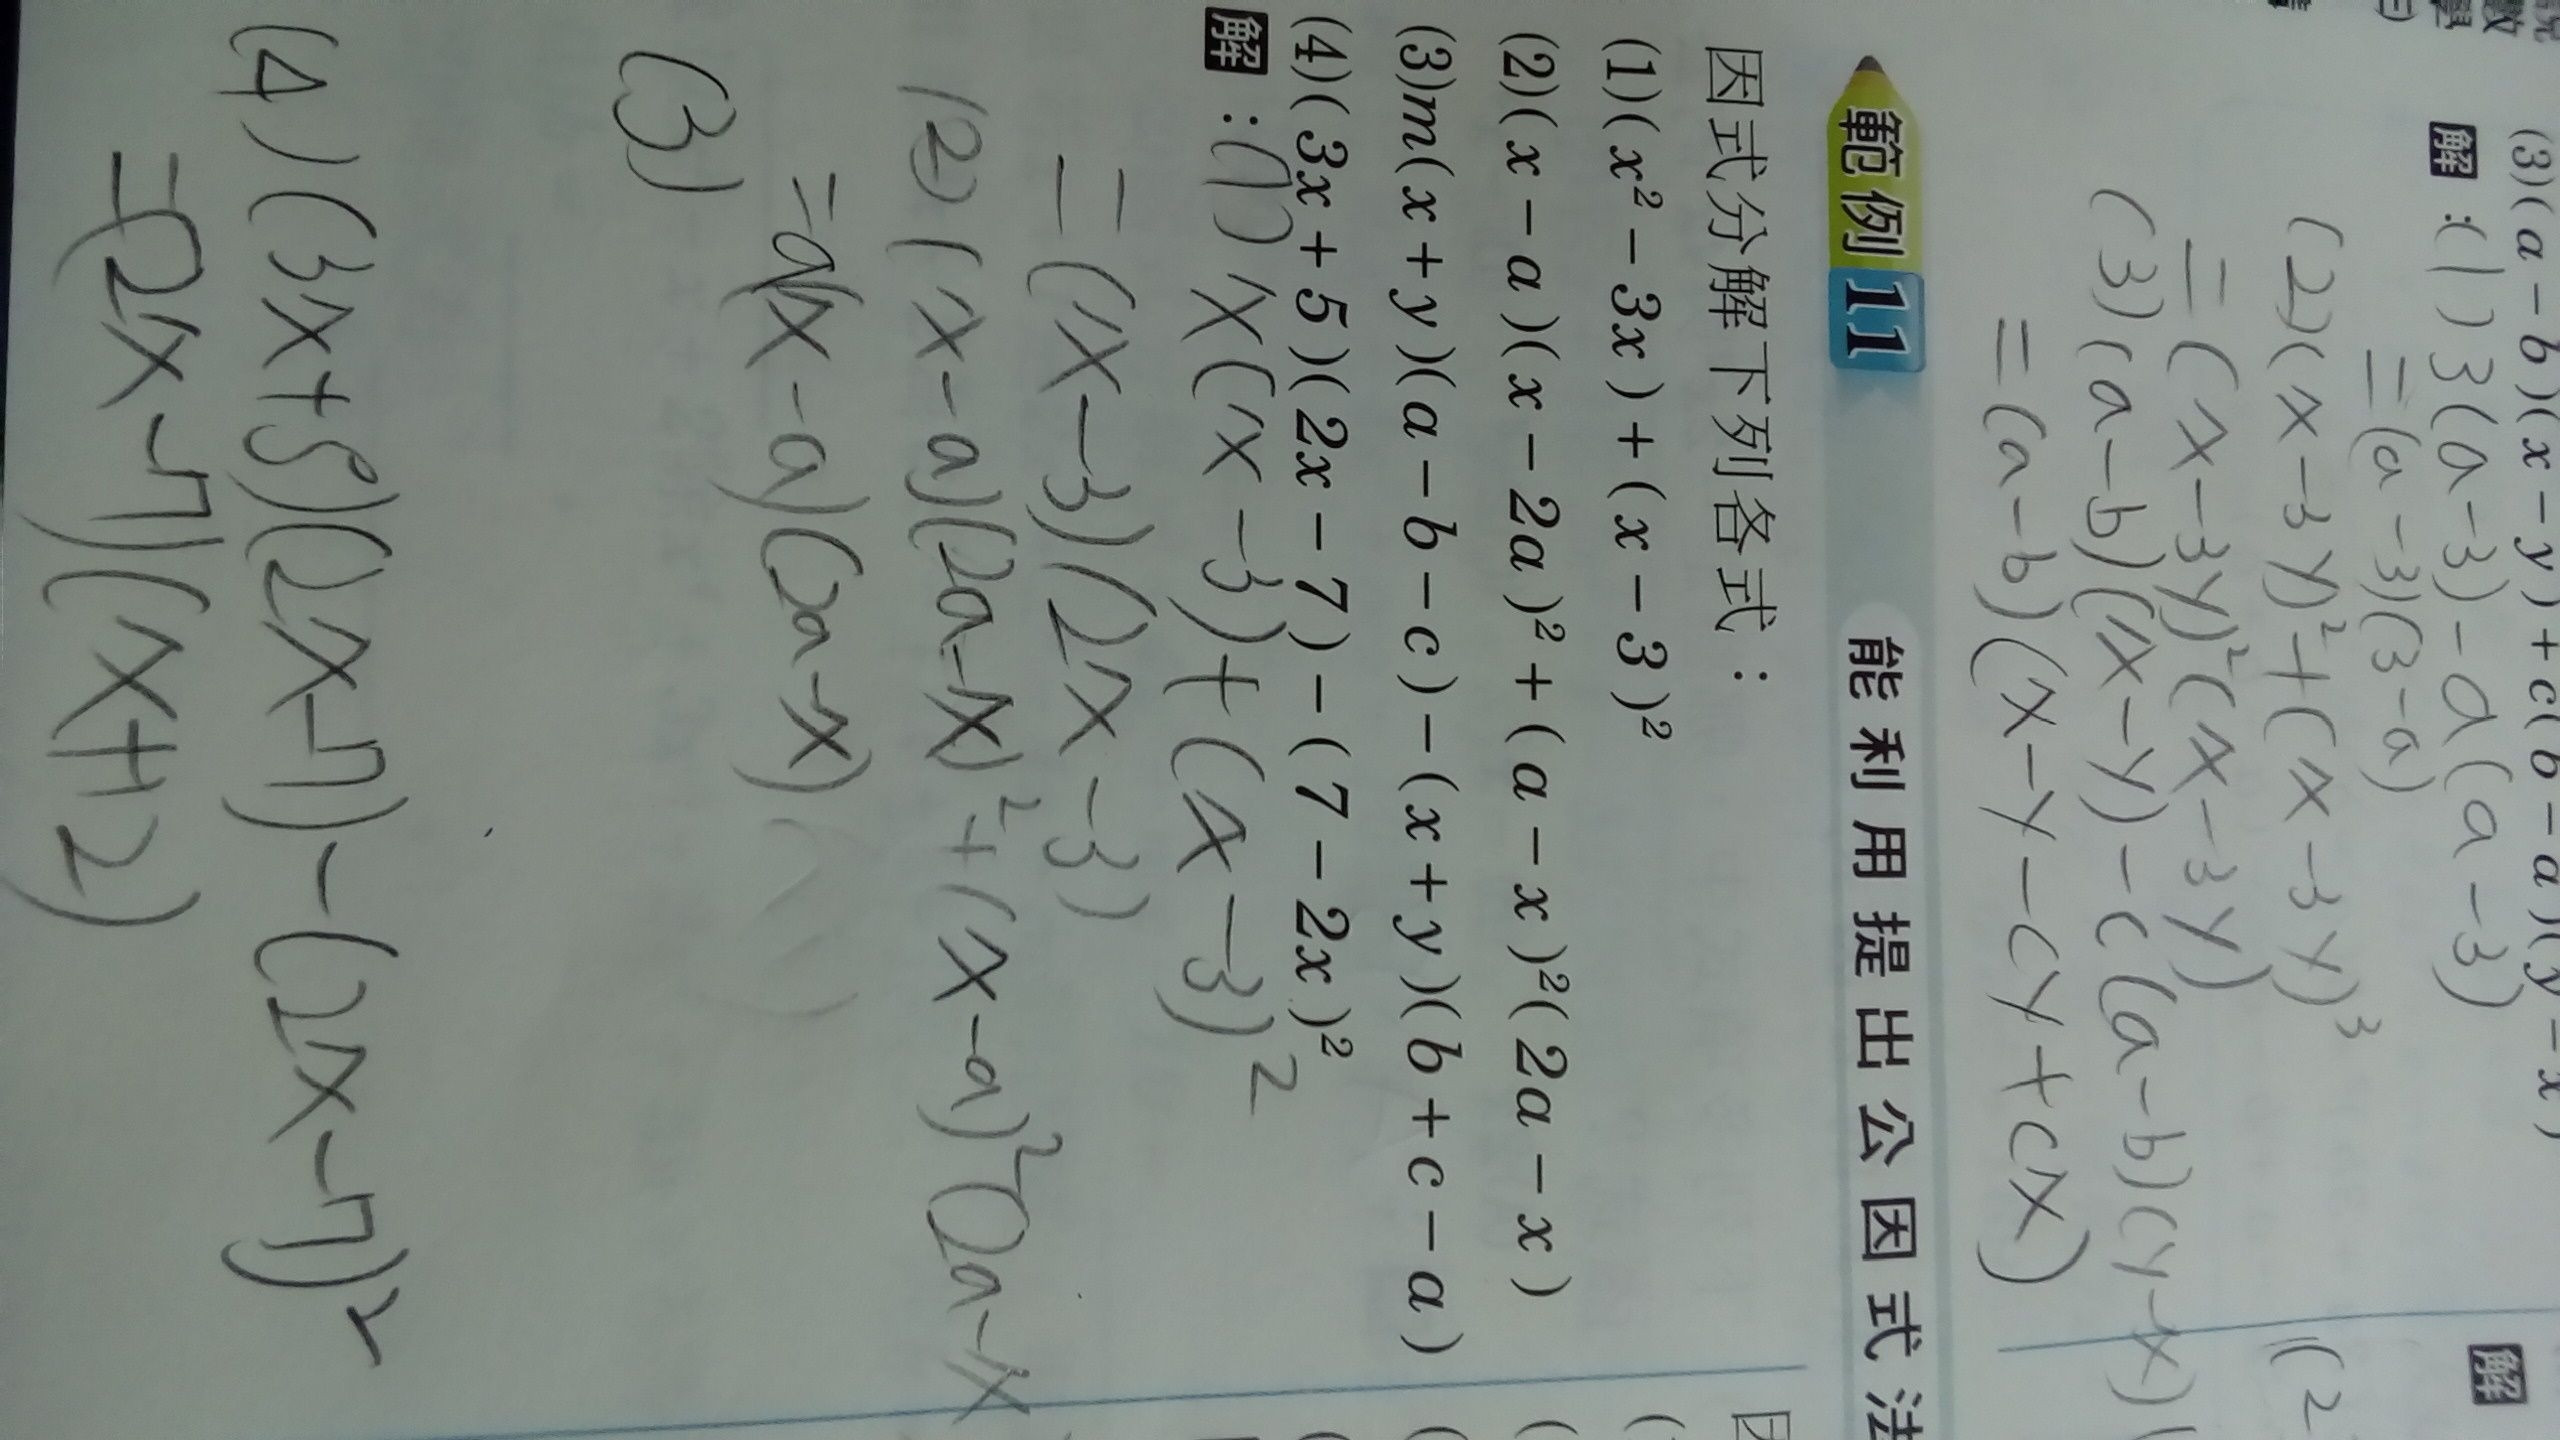 (3)(a-b)(x-y)+c(b-a)(y-x)
解:(1)3(a-3)-a(a-3)
=(a-3)(3-a)
(2)(x-3y)²+(x-3y)³
=(x-3y)²(x-3y)
(3)(a-b)(x-y)-c(a-b)(y-x)
=(a-b)(x-y-cy+cx)
範例11 能利用提出公因式法
因式分解下列各式:
(1)(x²-3x)+(x-3)²
(2)(x-a)(x-2a)²+(a-x)²(2a-x)
(3)m(x+y)(a-b-c)-(x+y)(b+c-a)
(4)(3x+5)(2x-7)-(7-2x)²
解:(1)x(x-3)+(x-3)²
=(x-3)(2x-3)
(2)(x-a)(2a-x)²+(x-a)²(2a-x
=a(x-a)(2a-x)
(3)
(4)(3x+5)(2x-7)-(2x-7)²
=(2x-7)(x+2)
解
(2